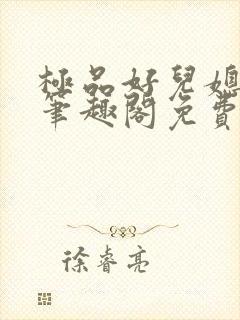 極品好兒媳
筆趣閣免費
徐睿亮